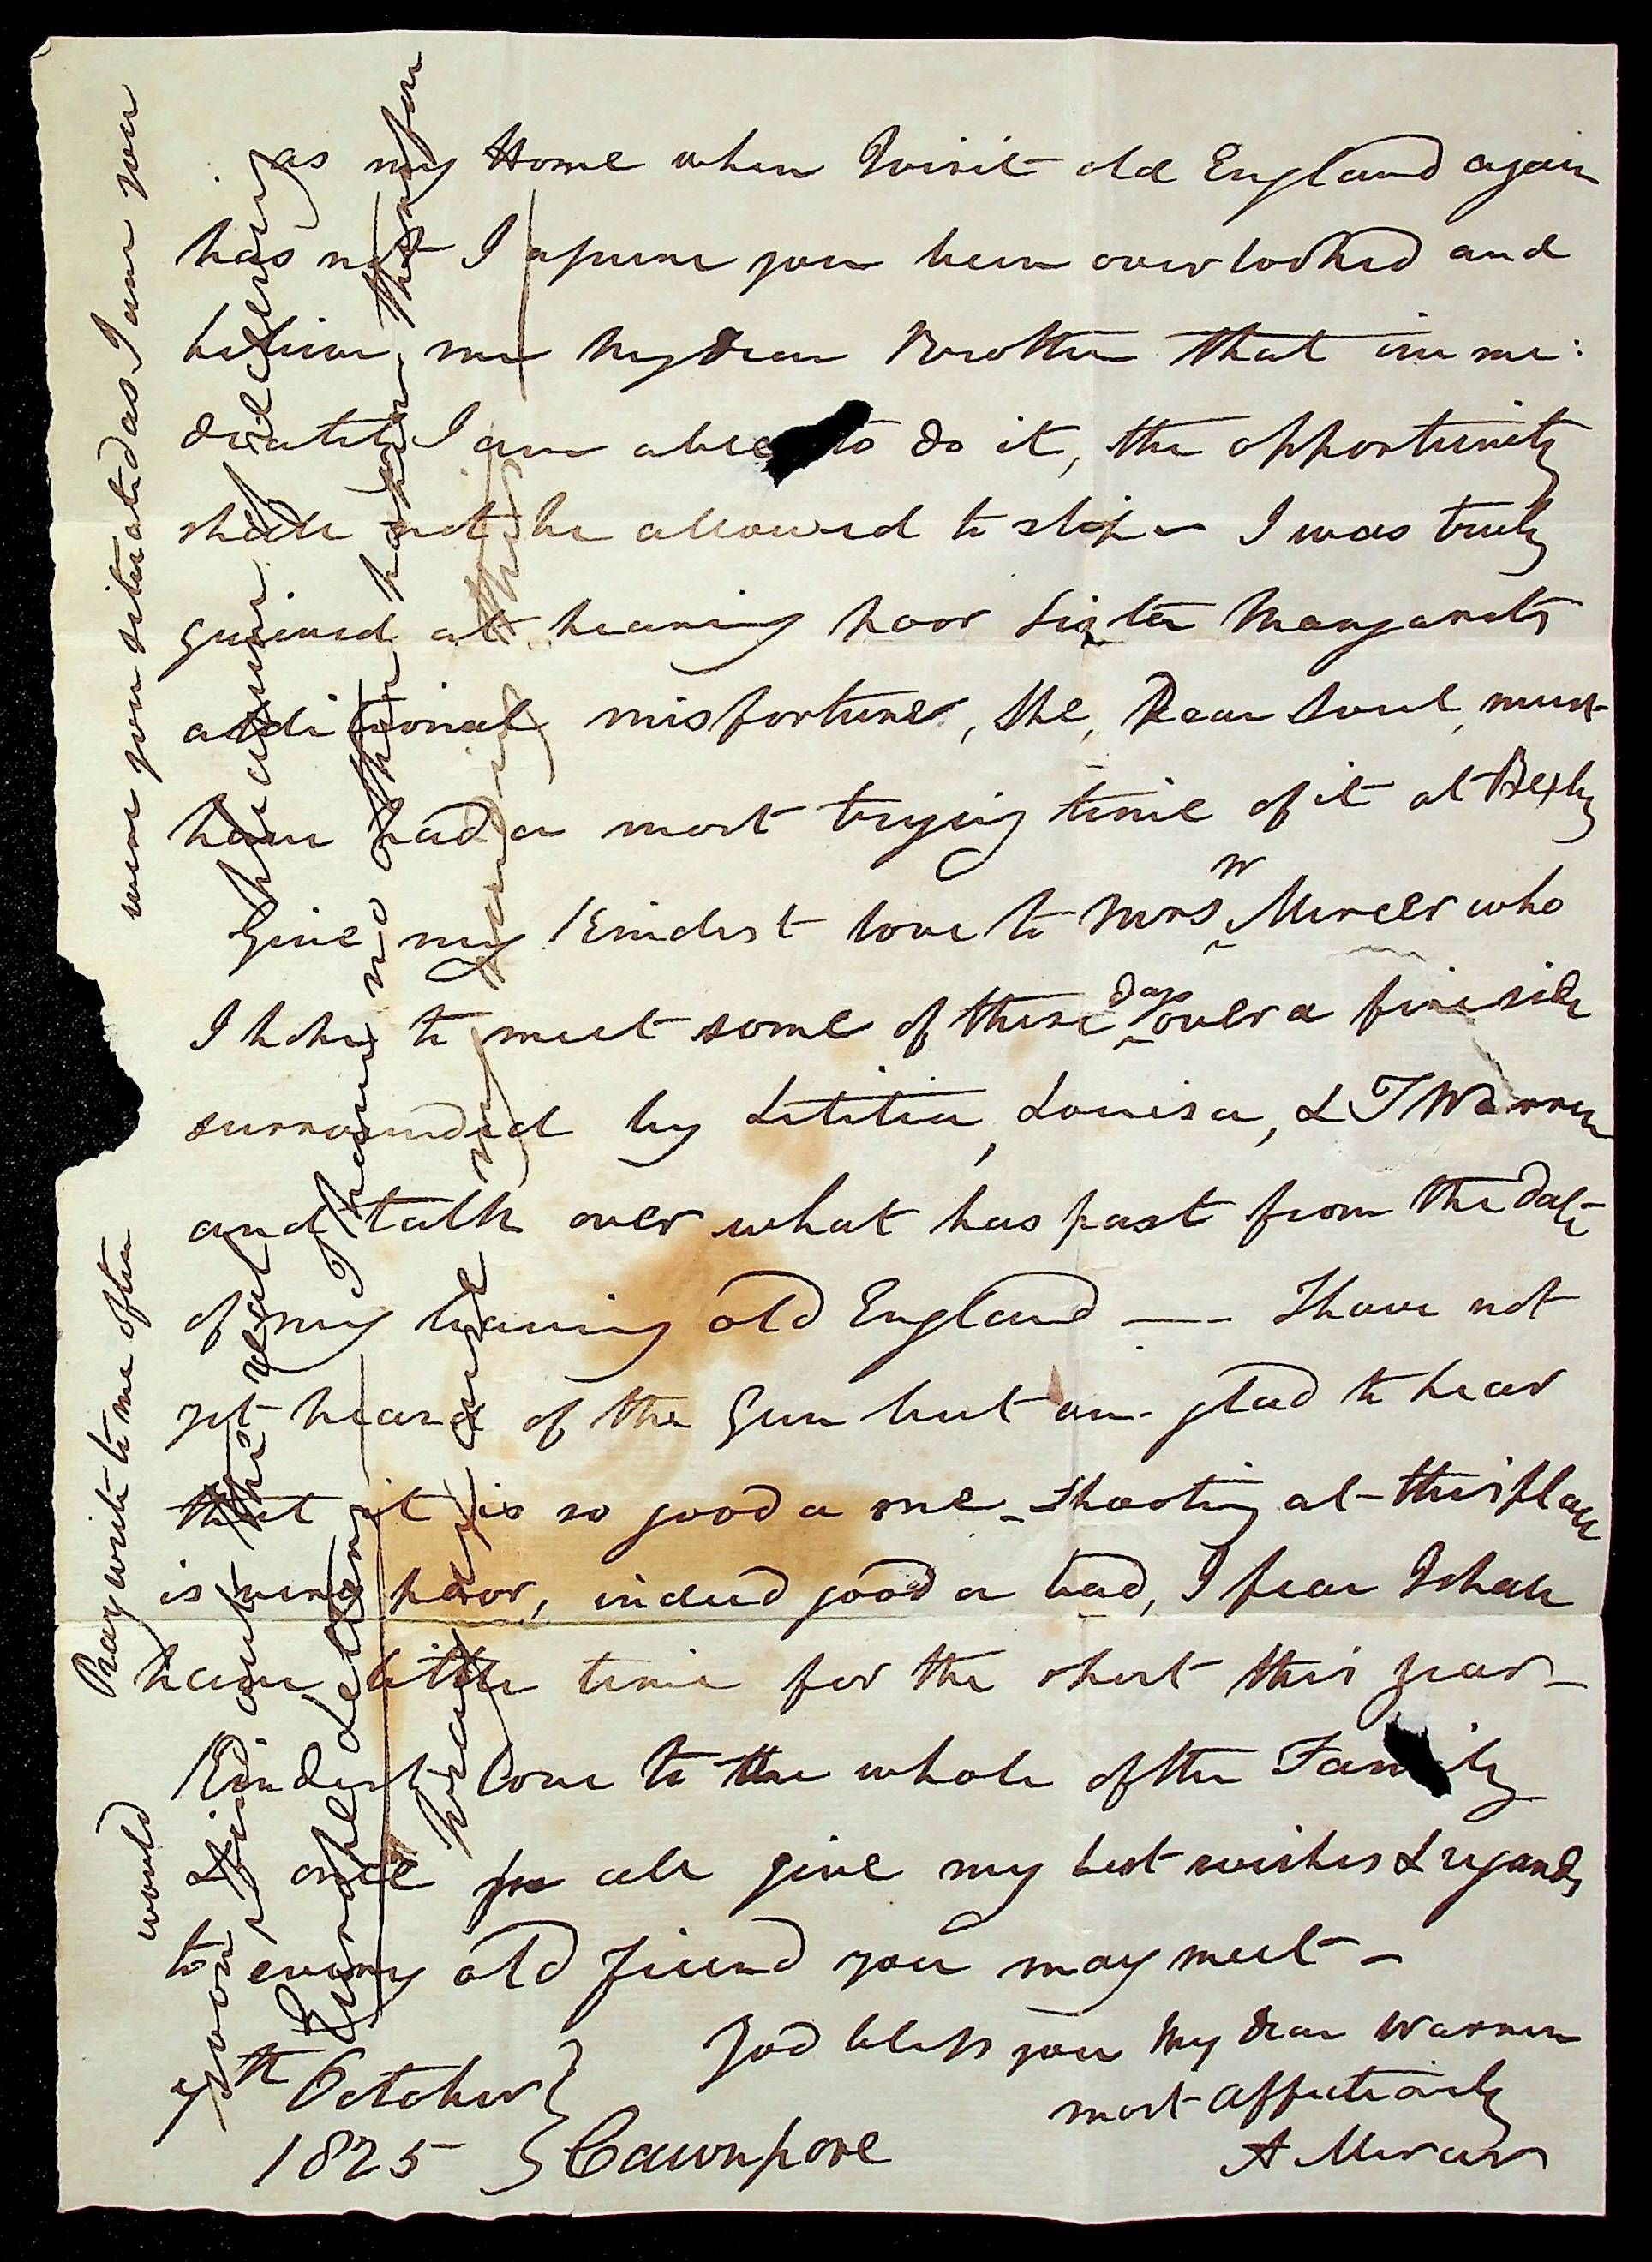 as my Home when I visit old England again
has not I assure you been overlooked and
believe me My Dear Brother that imme:
diately I am able to do it, the opportunity
shall not be allowed to slip — I was truly
grieved at hearing poor Sister Margarets
additional misfortunes, She, Dear Soul, must
have had a most trying time of it at Bexly
Give my Kindest love to Mrs W Mercer who
I hope to meet some of these days over a fireside
surrounded by Letitia, Louisa, & T Warren
and talk over what has past from the date
of my leaving old England —— I have not
yet heard of the Gun but am glad to hear
that it is so good a one - Shooting at this place
is very poor, indeed good or bad, I fear I shall
have little time for the sport this year —
Kindest love to the whole of the Family
& once for all give my best wishes & regards
to every old friend you may meet —
God bless you My Dear Warren
most affectionately
A Mercer
7th October
1825 Cawnpore
Pray write to me often
would
were you situated as I am you
your find out the real